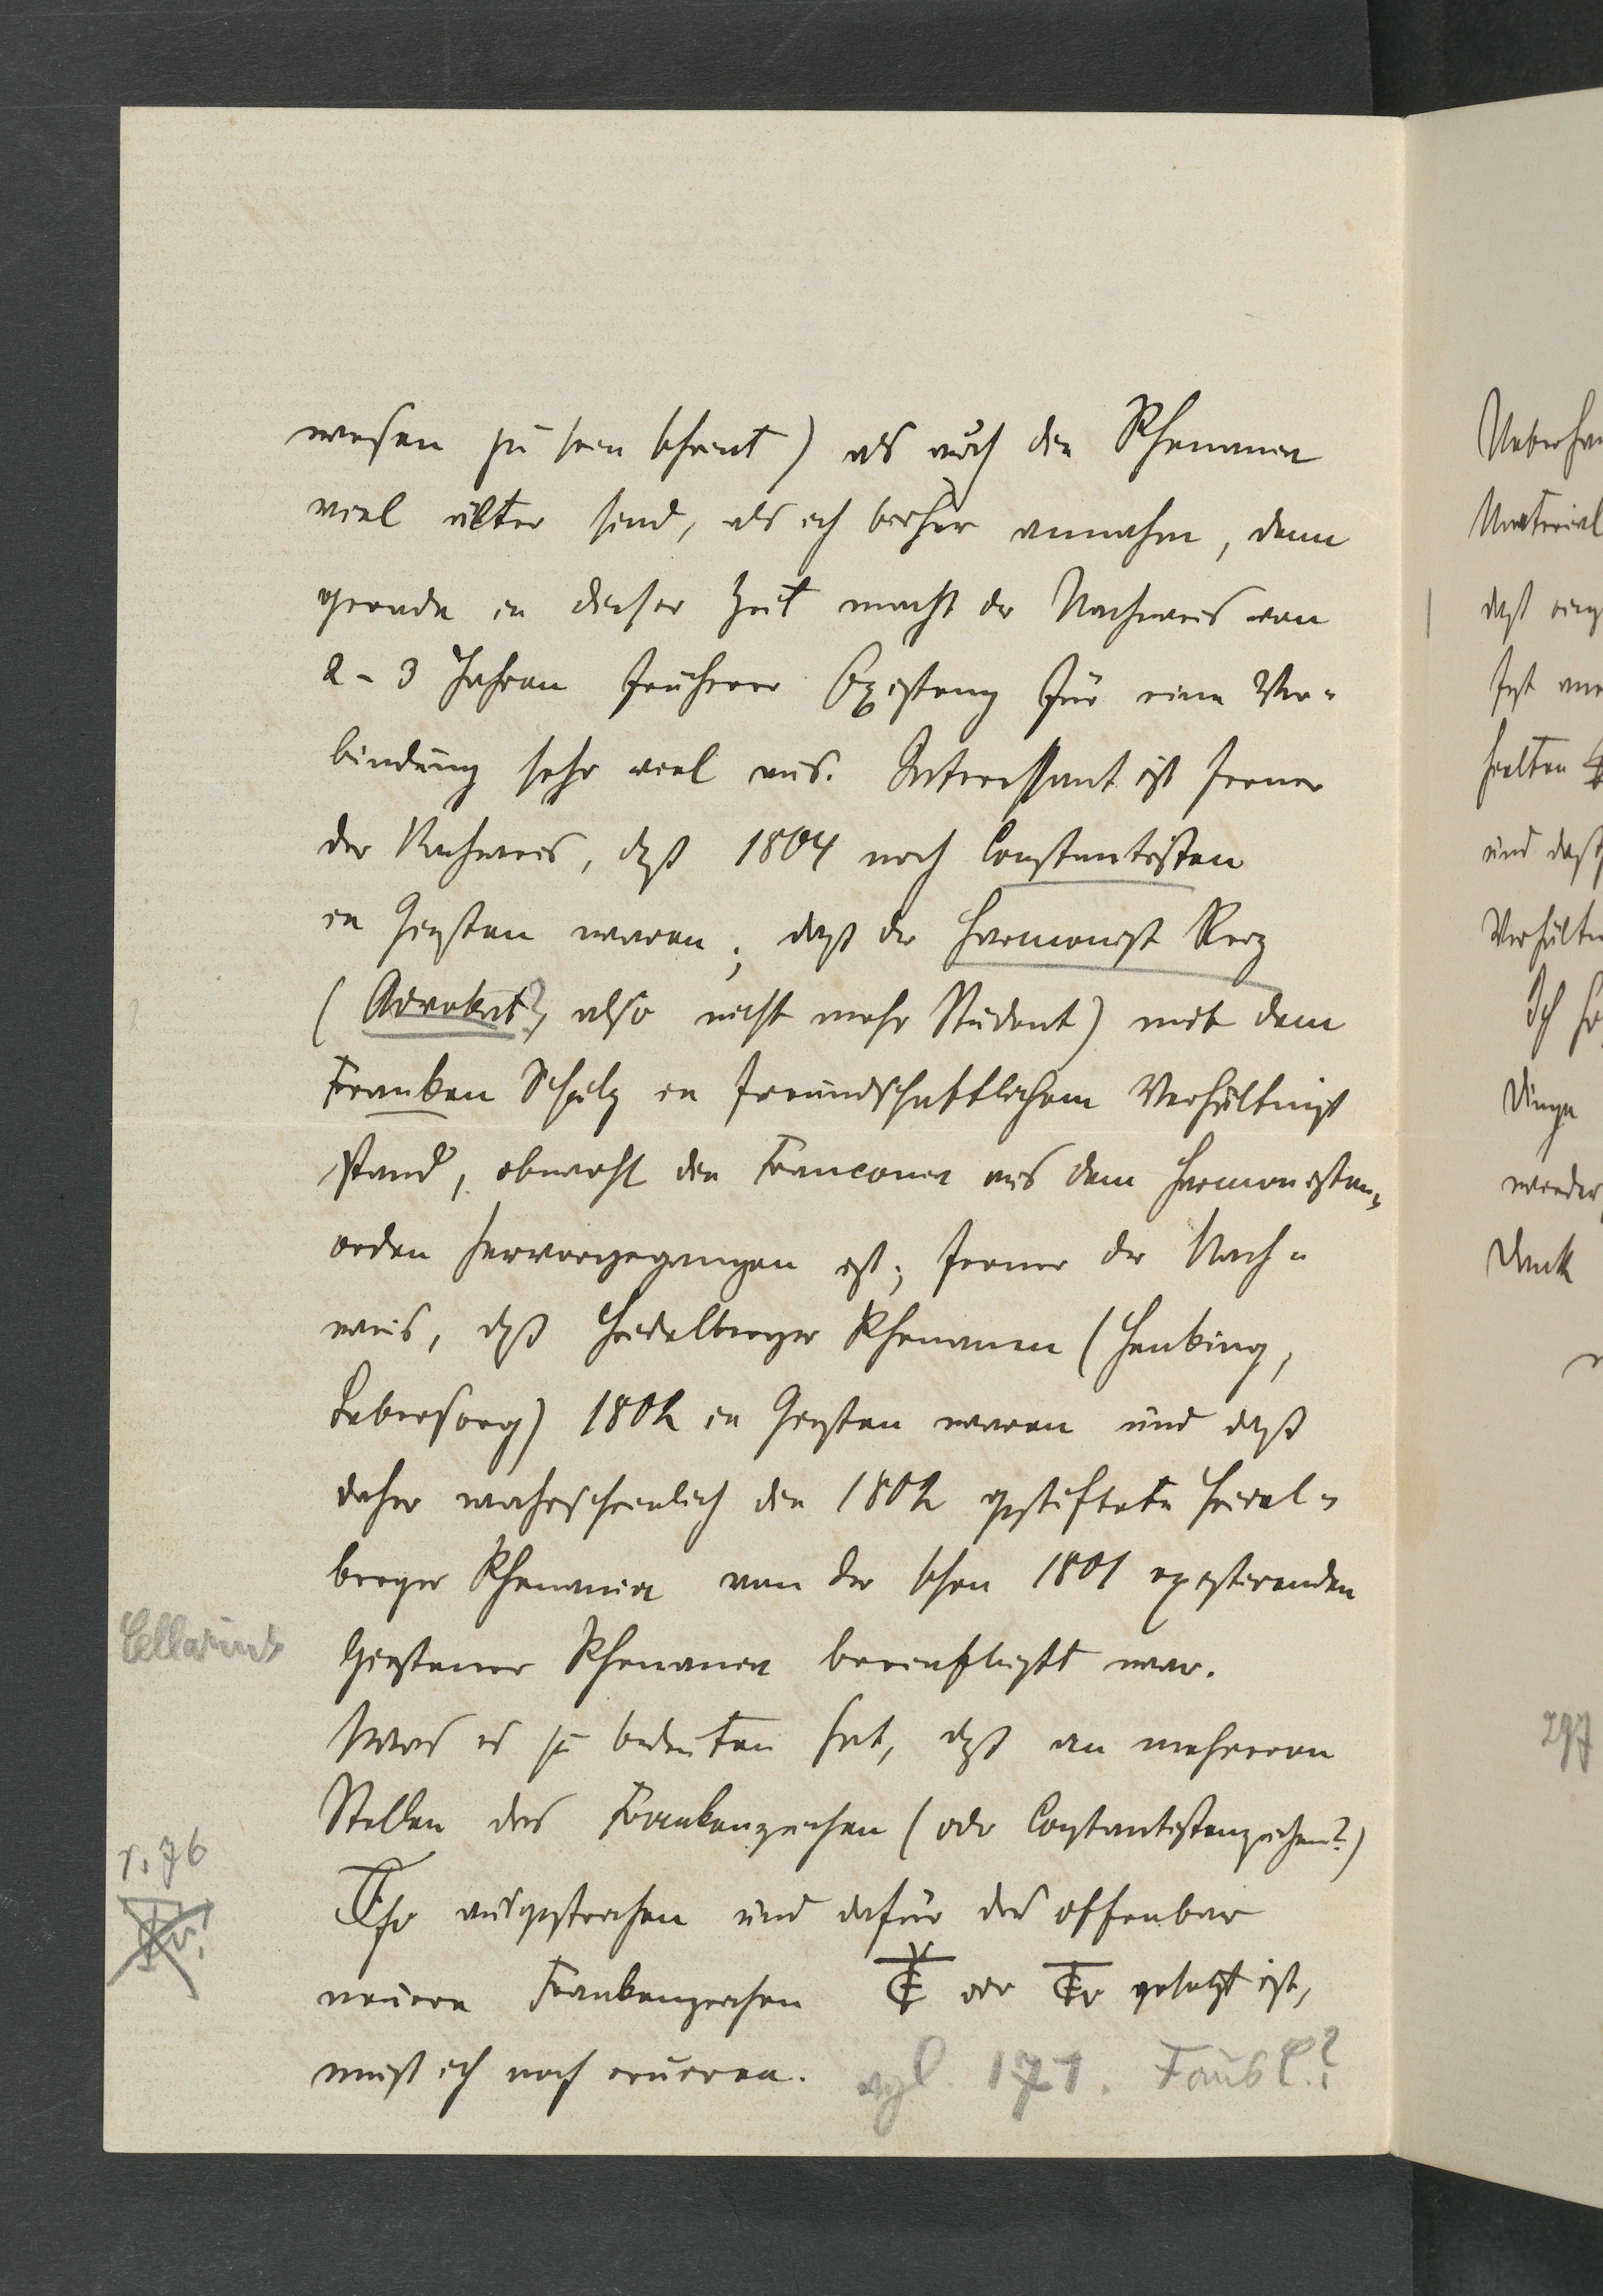 wesen zu sein scheint) als auch die Rhenania
viel älter sind, als ich bisher annahm, denn
gerade in dieser Zeit macht der Nachweis von
2-3 Jahren früherer Existenz für eine Ver-
bindung sehr viel aus. Interessant ist ferner
der Nachweis, daß 1804 noch Constantisten
in Gießen waren; daß der Harmonist Reiz
(Advokat?, also nicht mehr Student) mit dem
Franken Schulz in freundschaftlichem Verhältniß
stand, obwohl die Franconia aus dem Harmonisten-
orden hervorgegangen ist; ferner der Nach-
weis, daß Heidelberger Rhenanen (Henking,
Lebersorg) 1802 in Gießen waren und daß
daher wahrscheinlich die 1802 gestiftete Heidel-
berger Rhenania von der schon 1801 existirenden
Gießener Rhenania beeinflußt war.
Was es zu bedeuten hat, daß an mehreren
Stellen das Frankenzeichen (oder Constantistenzeichen?)
ausgestrichen und dafür das offenbar
neuere Frankenzeichen oder gesetzt ist,
muß ich noch eruieren. vgl. 171.
r. 76
Ueberha
Material
daß
und daß
Verhältn
Ich
Dinge
wieder
Dank
297